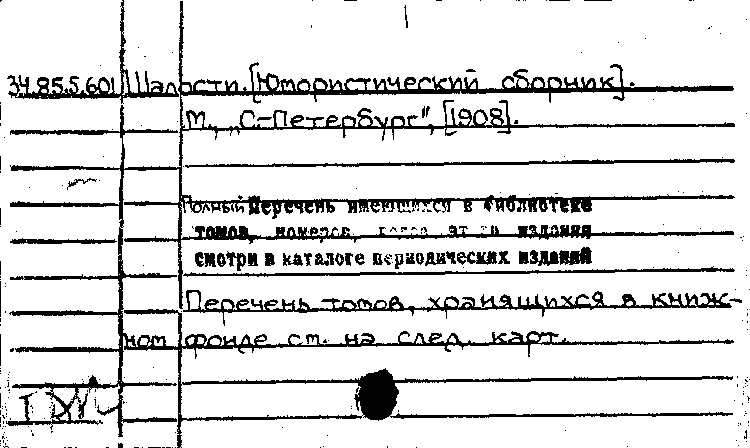 34.85.5.601 Шалости. [Юмористический сборник].
М., „С.-Петербург“, [1908].
Полный Перечень имеющихся в библиотеке
томов, номеров, годов этого издания
смотри в каталоге периодических изданий
Перечень томов, хранящихся в книж-
ном фонде см. на след. карт.